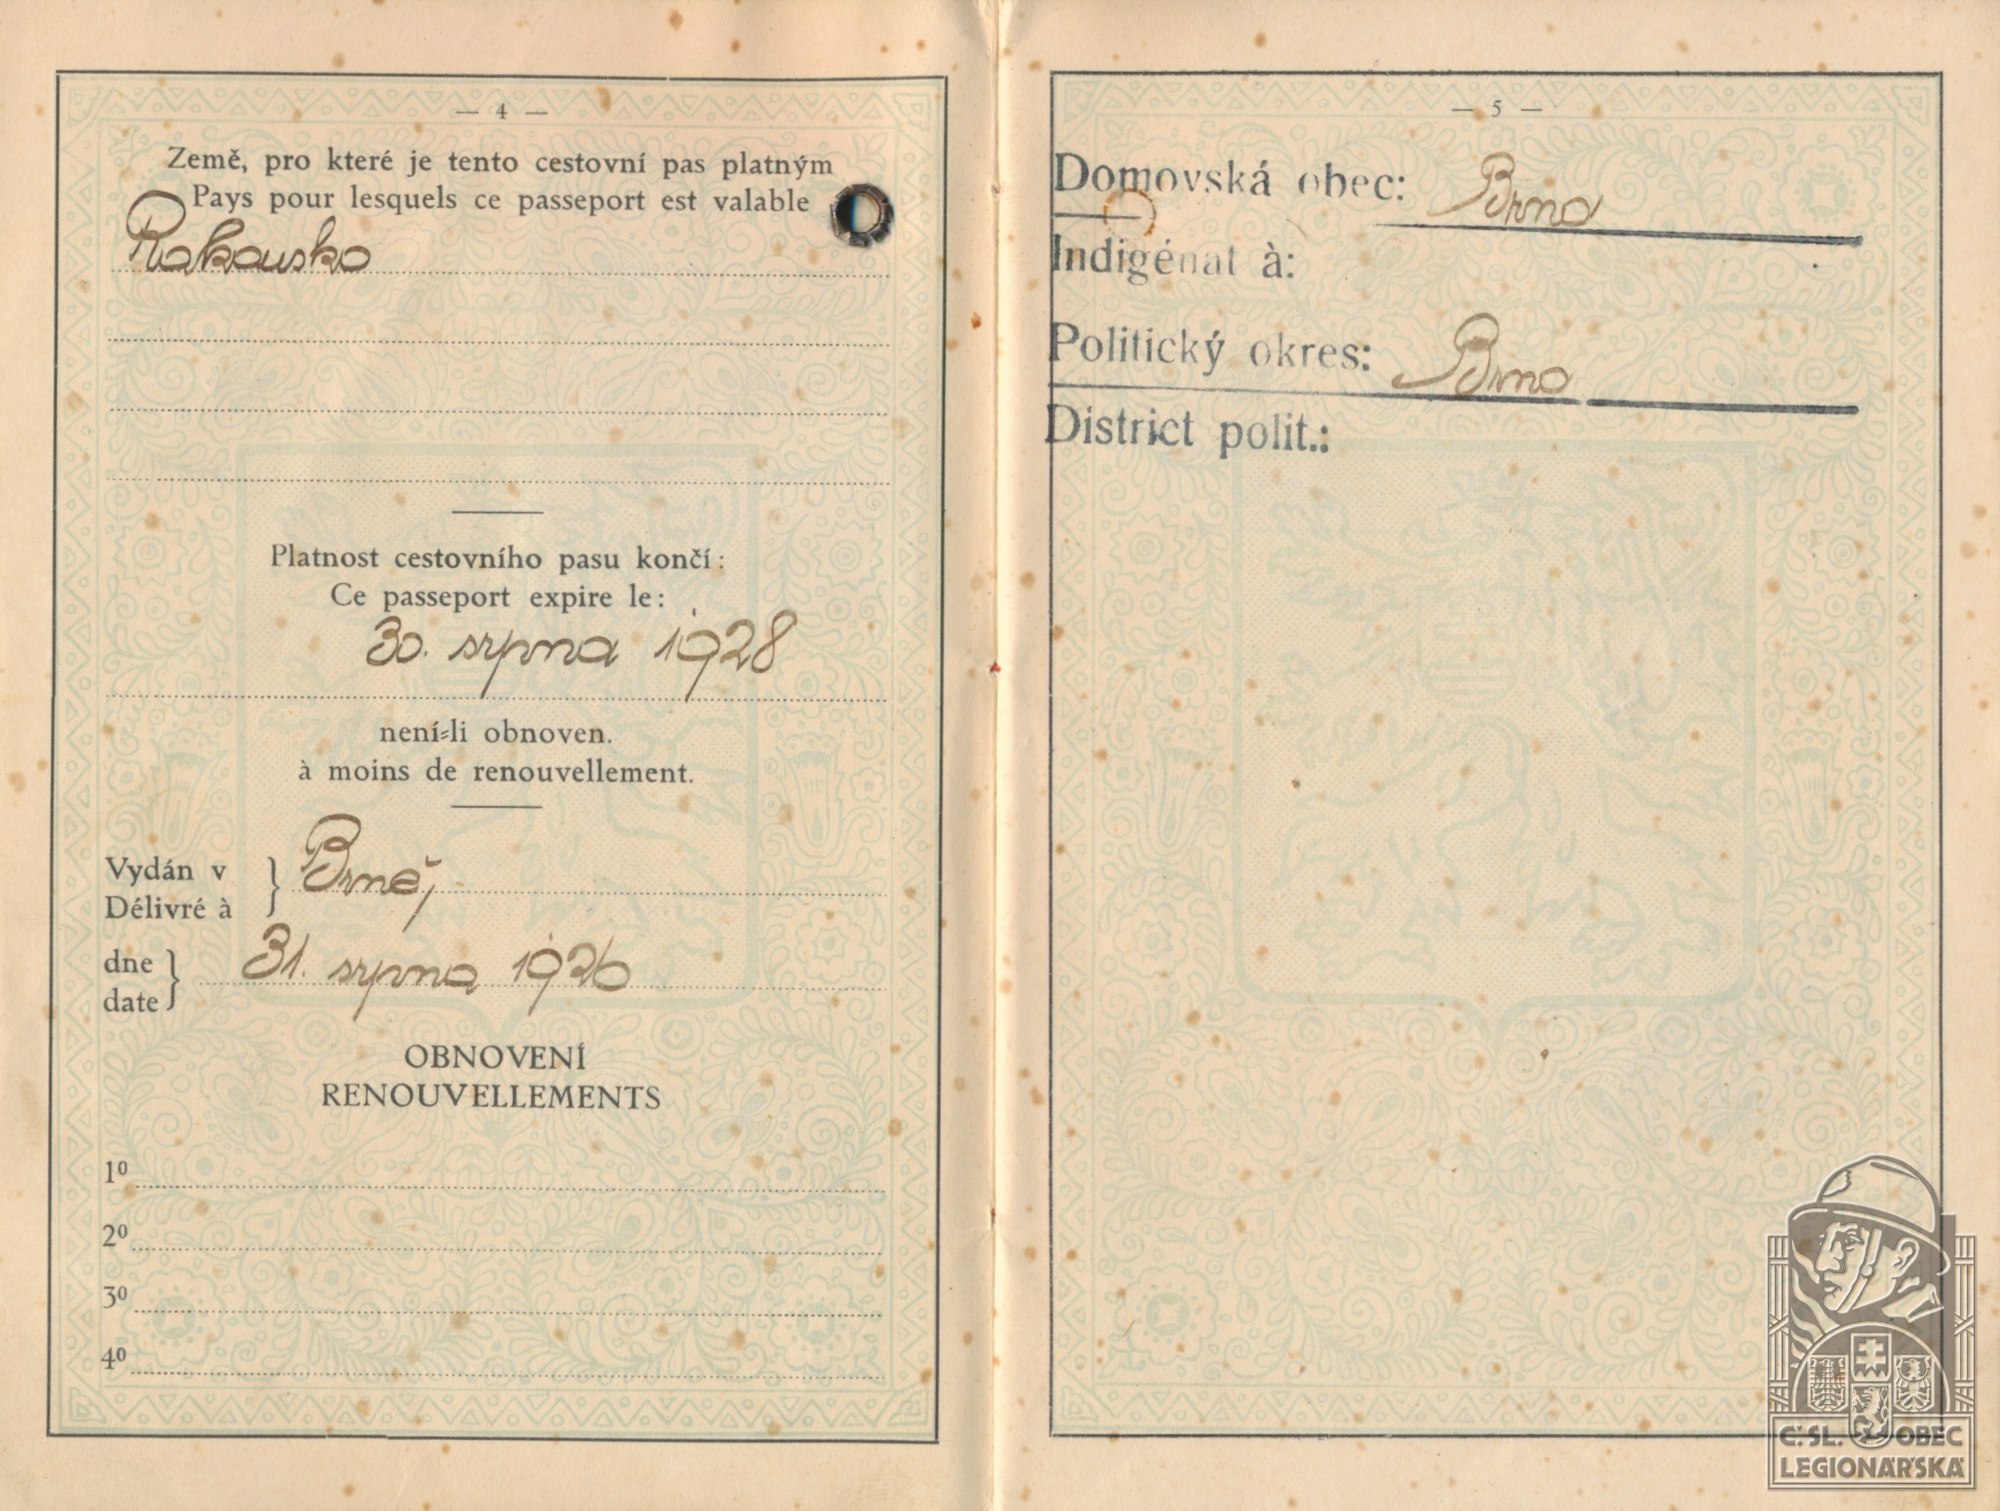 — 4 —
Země, pro které je tento cestovní pas platným
Pays pour lesquels ce passeport est valable
Rakousko
Platnost cestovního pasu končí:
Ce passeport expire le:
30. srpna 1928
není-li obnoven.
à moins de renouvellement.
Vydán v
Délivré à
Brně,
dne
date
31. srpna 1926
OBNOVENÍ
RENOUVELLEMENTS
1º
2º
3º
4º
— 5 —
Domovská obec: Brno
Indigénat à:
Politický okres: Brno
District polit.:
Č. SL. OBEC
LEGIONÁŘSKÁ